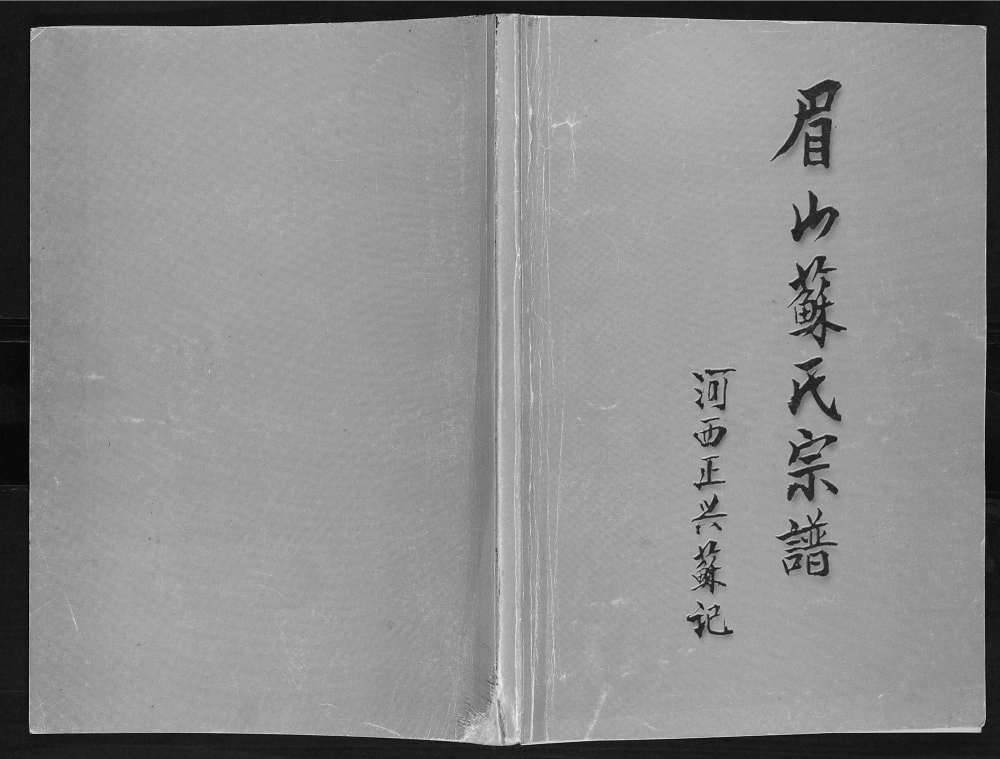 眉山蘇氏宗譜
河西正兴蘇记